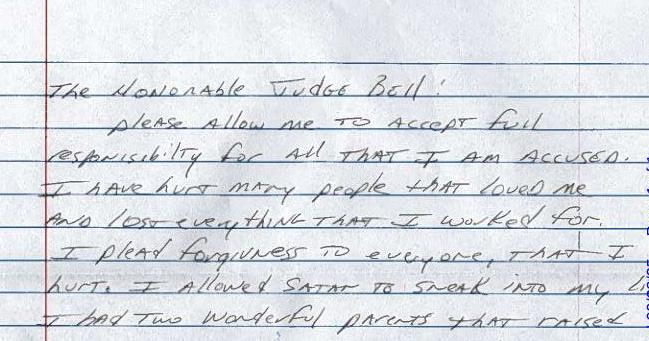 The Honorable Judge Bell:
please Allow me TO Accept full
responisibilty for All THAT I Am Accused.
I HAVE hurt mAny people tHAT loved me
AND lost everything THAT I worked for.
I pleAd forgivness TO everyone, THAT I
hurt. I Allowed SATAN TO SNEAK INTO my
I HAd Two wonderful pArents tHAT rAised